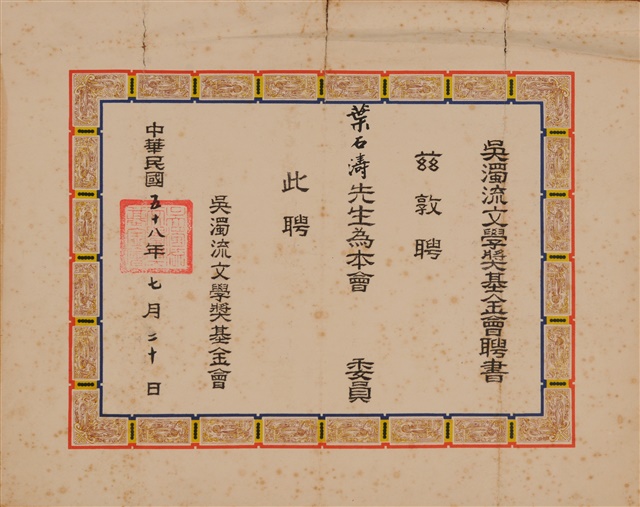 吳濁流文學獎基金會聘書
茲敦聘
葉石濤先生為本會　委員
此聘
吳濁流文學獎基金會
中華民國五十八年七月二十日